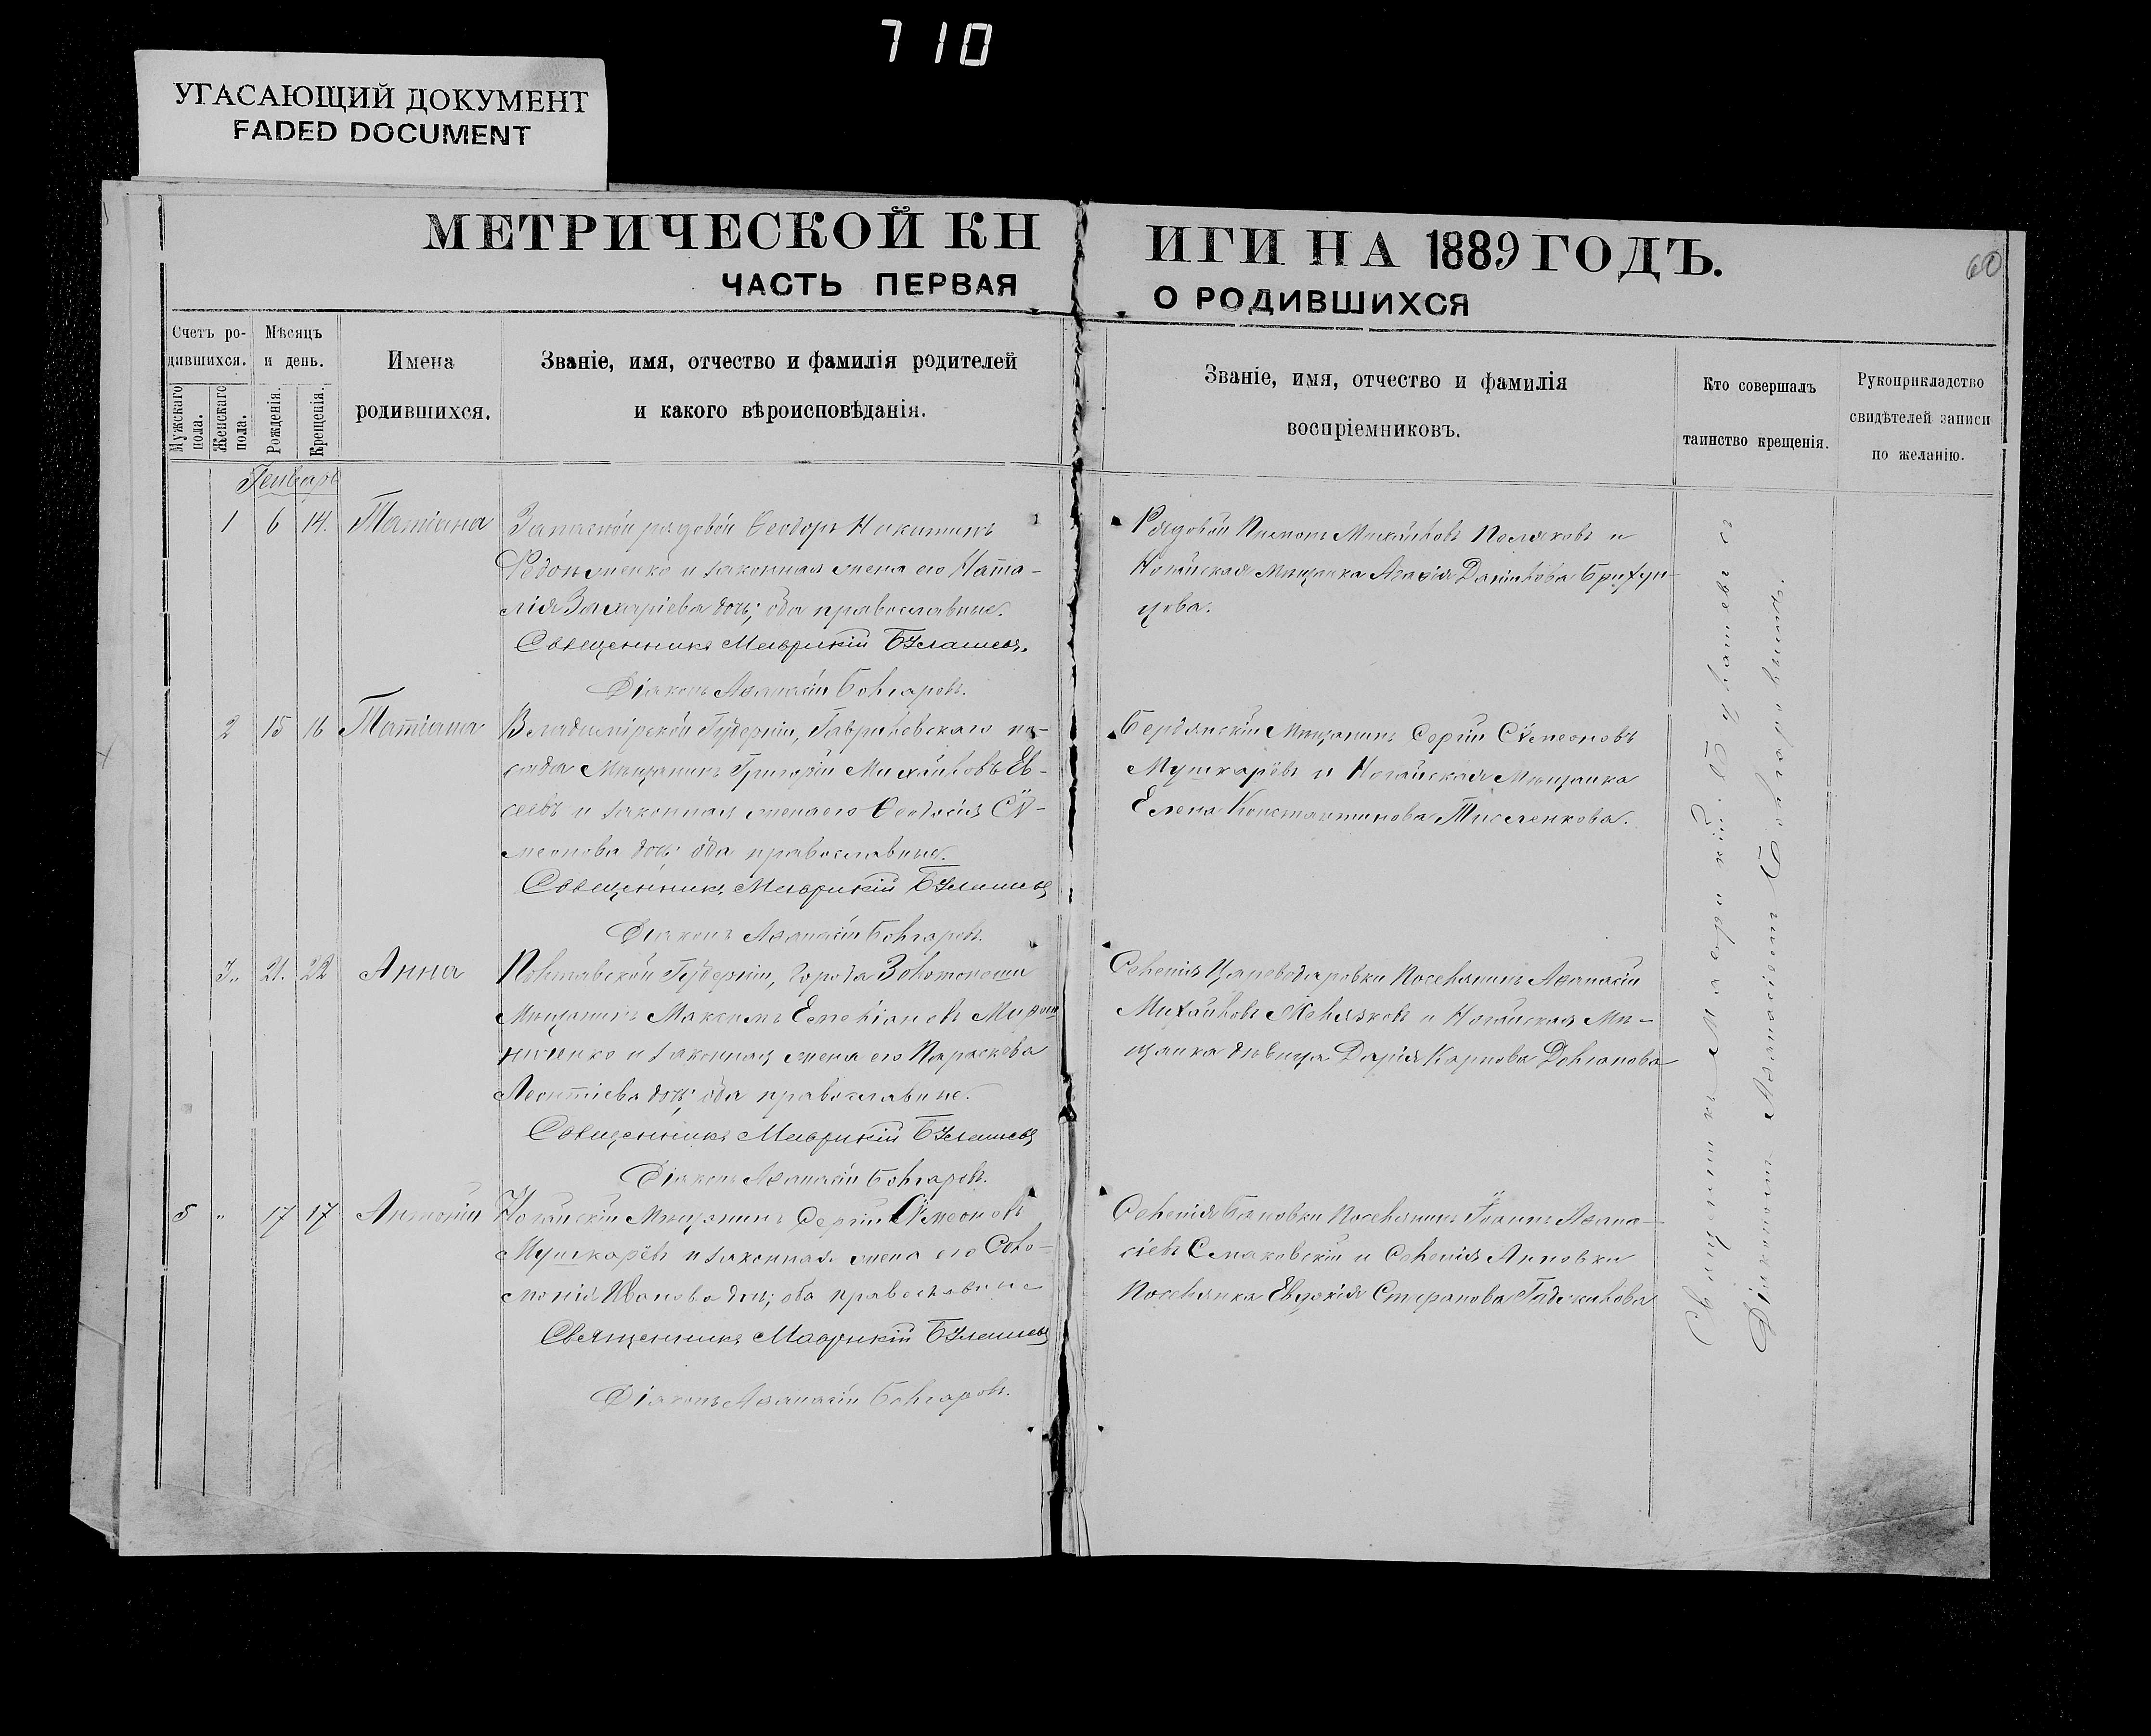 710
УГАСАЮЩИЙ ДОКУМЕНТ
FADED DOCUMENT
МЕТРИЧЕСКОЙ КНИГИ НА 1889 ГОДЪ.
60
ЧАСТЬ ПЕРВАЯ О РОДИВШИХСЯ
Счетъ ро-
дившихся.
Мужскаго пола.
Женскаго пола.
Мѣсяцъ
и день.
Рожденія.
Крещенія.
Имена
родившихся.
Званіе, имя, отчество и фамилія родителей
и какого вѣроисповѣданія.
Званіе, имя, отчество и фамилія
воспріемниковъ.
Кто совершалъ
таинство крещенія.
Рукоприкладство
свидѣтелей записи
по желанію.
Генварь
1 6 14. Татіана
Запасной рядовой Ѳеодоръ Никитинъ
и законная жена его Ната-
лія Захаріева дочь; оба православные.
Священникъ Маврикій
Діаконъ Аѳанасій Болгаровъ.
Рядовой Михайловъ Поляковъ и
Ногайская Мѣщанка Даніилова
цова.
2 15 16 Татіана
Владимірской Губерніи, Гавриловскаго по-
сада Мѣщанинъ Григорій Михайловъ Ев-
сеевъ и законная жена его Ѳеодосія Сѵ-
меонова дочь; оба православные.
Священникъ Маврикій
Діаконъ Аѳанасій Болгаровъ.
Бердянскій Мѣщанинъ Сергій Сѵмеоновъ
Мушкарёвъ и Ногайская Мѣщанка
Елена Константинова
3 " 21. 22 Анна
Полтавской Губерніи, города Золотоноши
Мѣщанинъ Максимъ Емеліановъ
и законная жена его Параскева
Леонтіева дочь; оба православные.
Священникъ Маврикій
Діаконъ Аѳанасій Болгаровъ.
Селенія Цареводаровки Поселянинъ Аѳанасій
Михайловъ Желязковъ и Ногайская Мѣ-
щанка дѣвица Дарія Карпова
5 " 17 17 Антоній
Ногайскій Мѣщанинъ Сергій Сѵмеоновъ
Мушкарёвъ и законная жена его Соло-
монія Иванова дочь; оба православные
Священникъ Маврикій
Діаконъ Аѳанасій Болгаровъ.
Селенія Бановки Поселянинъ Іоаннъ Аѳана-
сіевъ и Селенія Анновки
Поселянка Евдокія Стефанова
Священникъ Маврикій съ
Діакономъ Аѳанасіемъ Болгаровымъ.